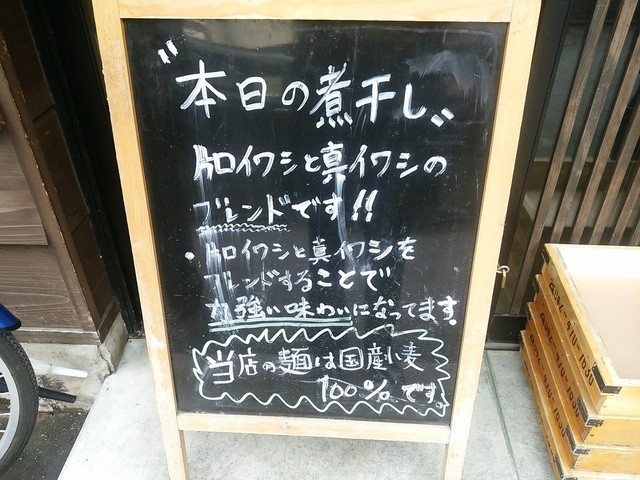 "本日の煮干し"
片口イワシと真イワシの
ブレンドです!!
・片口イワシと真イワシを
ブレンドすることで
力強い味わいになってます.
当店の麺は国産小麦
100%です。